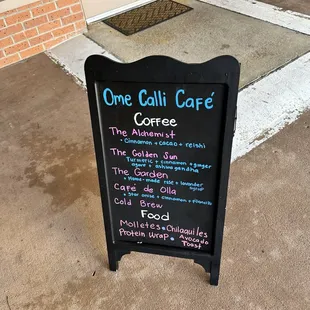 Ome Calli Café
Coffee
The Alchemist
• Cinnamon + cacao + reishi
The Golden Sun
Turmeric + cinnamon + ginger
agave + ashwagandha
The Garden
• Home-made rose + lavender
Café de Olla
• Star anise + cinnamon + piloncillo
Cold Brew
Food
Molletes • Chilaquiles
Protein Wrap • Avocado
Toast